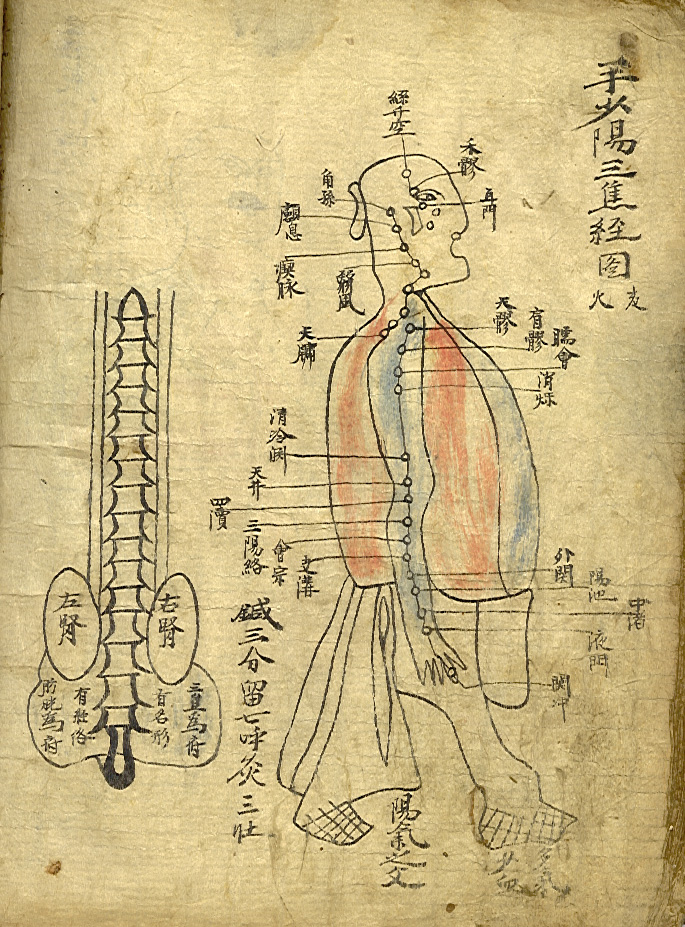 手少陽三焦经图
火
絲竹空
禾髎
角孫
耳門
顱息
瘈脉
翳風
天牖
天髎
肩髎
臑會
消烁
清冷渊
天井
四瀆
三陽絡
會宗
支溝
外関
陽池
中渚
液門
関冲
鍼三分留七呼灸三壮
陽氣之父
左腎
右腎
膀胱為府
有経络
有名形
三焦為府